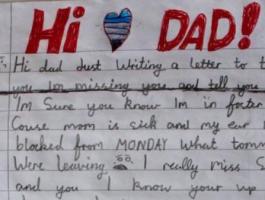 Hi DAD!
Hi dad Just Writing a letter to t
you Im missing you and tell you
Im Sure you know Im in foster
Couse mom is sick and my ear
blocked from MONDAY what tomm
Were leaving I really miss S
and you I know your up